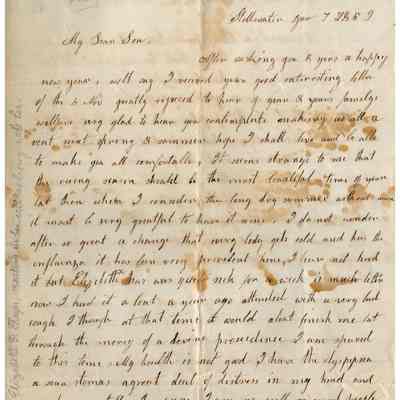 Stillwater Jan 7 1869
My Dear Son.
After wishing you & yours a happy
new year I will say I received your good interesting letter
of the & No greatly rejoiced to hear of your & yours family
welfare very glad to hear you contemplate making us all a
vent next spring & summer hope I shall live and be able
to make you all comfortable. It seems strange to me that
the rainy season should be the most beautiful time of year
but then when I consider the long dry summer without rain
it must be very greatful to have it rain. I do not wonder
after so great a change that every body gets cold and has the
influenza it has been very prevalent here, I have not had
it but Elizebeth has was quite sick for a week is much better
now I had it about a year ago attended with a very bad
cough I though at that time it would about finish me but
through the mercy of a devine proveidence I am spared
to this time. My health is not good I have the dyspepsia
a sour stomac a great deal of distress in my head and